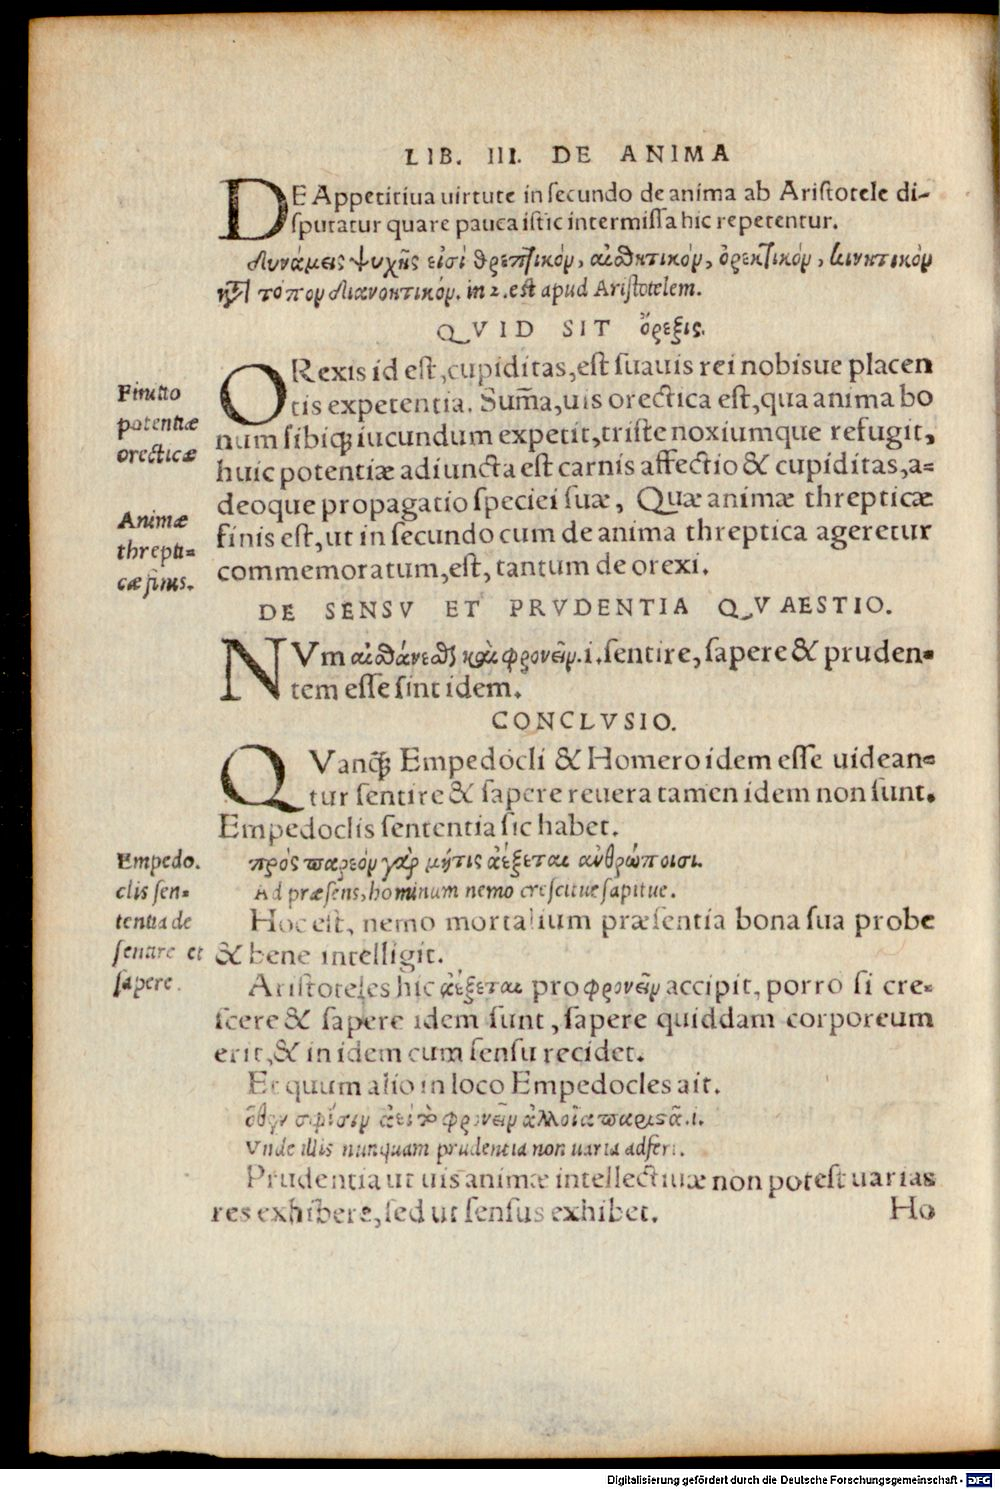 LIB. III. DE ANIMA
DE Appetitiua uirtute in secundo de anima ab Aristotele di-
sputatur quare pauca istic intermissa hic repetentur.
δυνάμεις ψυχῆς εἰσὶ θρεπτικόν, αἰσθητικόν, ὀρεκτικόν, κινητικὸν
κατὰ τόπον διανοητικόν. in 2. est apud Aristotelem.
QVID SIT ὄρεξις.
Finitio
potentiæ
orecticæ
ORexis id est, cupiditas, est suauis rei nobisue placen
tis expetentia. Sum̄a, uis orectica est, qua anima bo
num sibiq; iucundum expetit, triste noxiumque refugit,
huic potentiæ adiuncta est carnis affectio & cupiditas, a-
deoque propagatio speciei suæ, Quæ animæ threpticæ
finis est, ut in secundo cum de anima threptica ageretur
commemoratum, est, tantum de orexi.
Animæ
threpti-
cæ finis.
DE SENSV ET PRVDENTIA QVAESTIO.
NVm αἰσθάνεσθαι καὶ φρονεῖν. i. sentire, sapere & pruden-
tem esse sint idem.
CONCLVSIO.
QVanq̃; Empedocli & Homero idem esse uidean-
tur sentire & sapere reuera tamen idem non sunt.
Empedoclis sententia sic habet.
Empedo.
clis sen-
tentia de
sentire et
sapere.
πρὸς παρεὸν γὰρ μῆτις ἀέξεται ἀνθρώποισι.
Ad præsens, hominum nemo crescitue sapitue.
Hoc est, nemo mortalium præsentia bona sua probe
& bene intelligit.
Aristoteles hic ἀέξεται pro φρονεῖν accipit, porro si cre-
scere & sapere idem sunt, sapere quiddam corporeum
erit, & in idem cum sensu recidet.
Et quum alio in loco Empedocles ait.
ὅθεν σφίσιν ἀεὶ τὸ φρονεῖν ἀλλοῖα παριστᾶ. i.
Vnde illis nunquam prudentia non uaria adfert.
Prudentia ut uis animæ intellectiuæ non potest uarias
res exhibere, sed ut sensus exhibet.
Ho
Digitalisierung gefördert durch die Deutsche Forschungsgemeinschaft - DFG